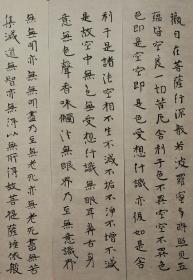 觀自在菩薩行深般若波羅蜜多時照見五
蘊皆空度一切苦厄舍利子色不異空空不異
色色即是空空即是色受想行識亦復如是舍
利子是諸法空相不生不滅不垢不淨不增不減
是故空中無色無受想行識無眼耳鼻舌身
意無色聲香味觸法無眼界乃至無意識界
無無明亦無無明盡乃至無老死亦無老死盡無苦
集滅道無智亦無得以無所得故菩提薩埵依般